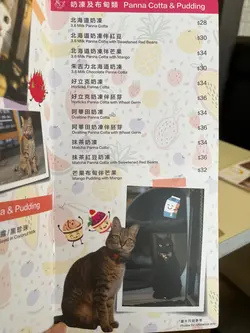 奶凍及布甸類 Panna Cotta & Pudding
北海道奶凍 $28
3.6 Milk Panna Cotta
北海道奶凍伴紅豆 $30
3.6 Milk Panna Cotta with Sweetened Red Beans
北海道奶凍伴芒果 $34
3.6 Milk Panna Cotta with Mango
朱古力北海道奶凍 $34
3.6 Milk Chocolate Panna Cotta
好立克奶凍 $34
Horlicks Panna Cotta
好立克奶凍伴胚芽 $36
Horlicks Panna Cotta with Wheat Germ
阿華田奶凍 $34
Ovaltine Panna Cotta
阿華田奶凍伴胚芽 $36
Ovaltine Panna Cotta with Wheat Germ
抹茶奶凍 $34
Matcha Panna Cotta
抹茶紅豆奶凍 $36
Matcha Panna Cotta with Sweetened Red Beans
芒果布甸伴芒果 $32
Mango Pudding with Mango
a & Pudding